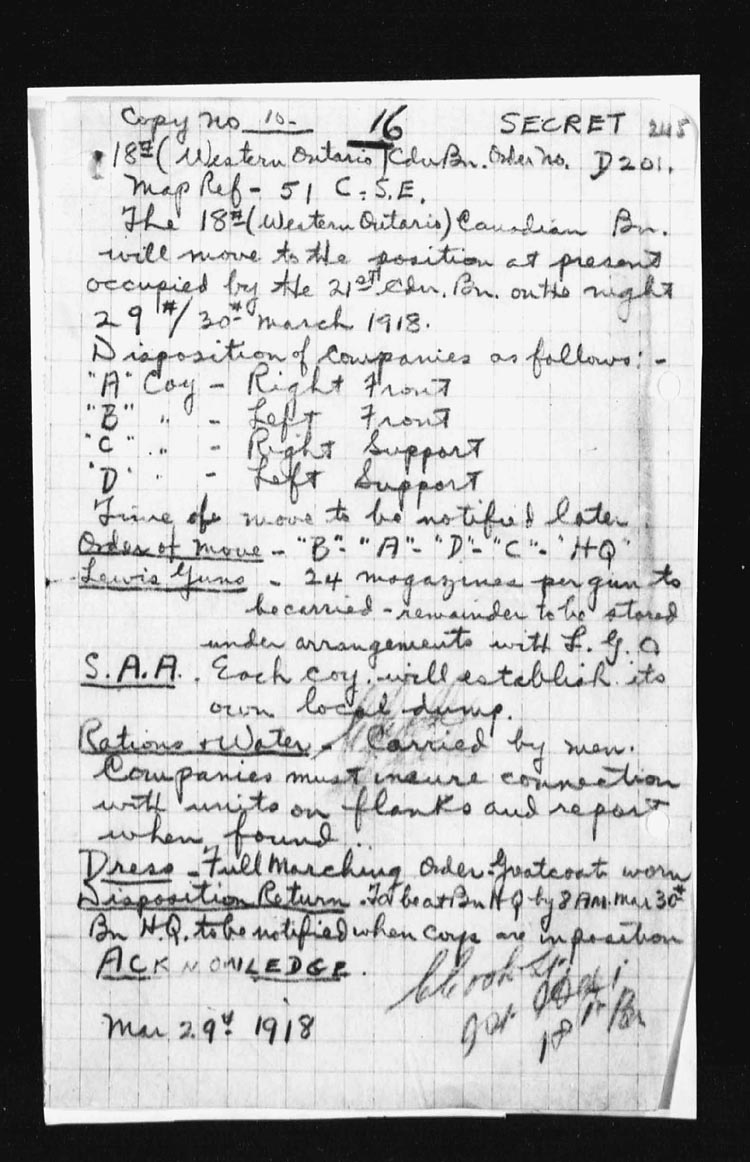 Copy No 10- 16 SECRET 245
18th (Western Ontario) Cdn Bn. Order No. D201.
Map Ref - 51 C. S.E.
The 18th (Western Ontario) Canadian Bn.
will move to the position at present
occupied by the 21st Cdn. Bn. on the night
29th/30th March 1918.
Disposition of Companies as follows:-
"A" Coy - Right Front
"B" " - Left Front
"C" " - Right Support
"D" " - Left Support
Time of move to be notified later.
Order of Move - "B" - "A" - "D" - "C" - "HQ"
Lewis Guns - 24 magazines per gun to
be carried - remainder to be stored
under arrangements with L.G.O
S.A.A. Each coy. will establish its
own local dump.
Rations & Water - Carried by men.
Companies must insure connection
with units on flanks and report
when found.
Dress - Full Marching Order. Greatcoats worn
Disposition Return. To be at Bn HQ by 8 AM. Mar 30th
Bn H.Q. to be notified when coys are in position
ACKNOWLEDGE.
18th Bn
Mar 29th 1918